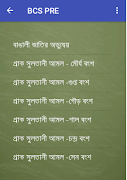 BCS PRE
বাঙালী জাতির অভ্যুদয়
প্রাক সুলতানী আমল - মৌর্য বংশ
প্রাক সুলতানী আমল -গুপ্ত বংশ
প্রাক সুলতানী আমল -গৌড় বংশ
প্রাক সুলতানী আমল -পাল বংশ
প্রাক সুলতানী আমল -চন্দ্র বংশ
প্রাক সুলতানী আমল -সেন বংশ